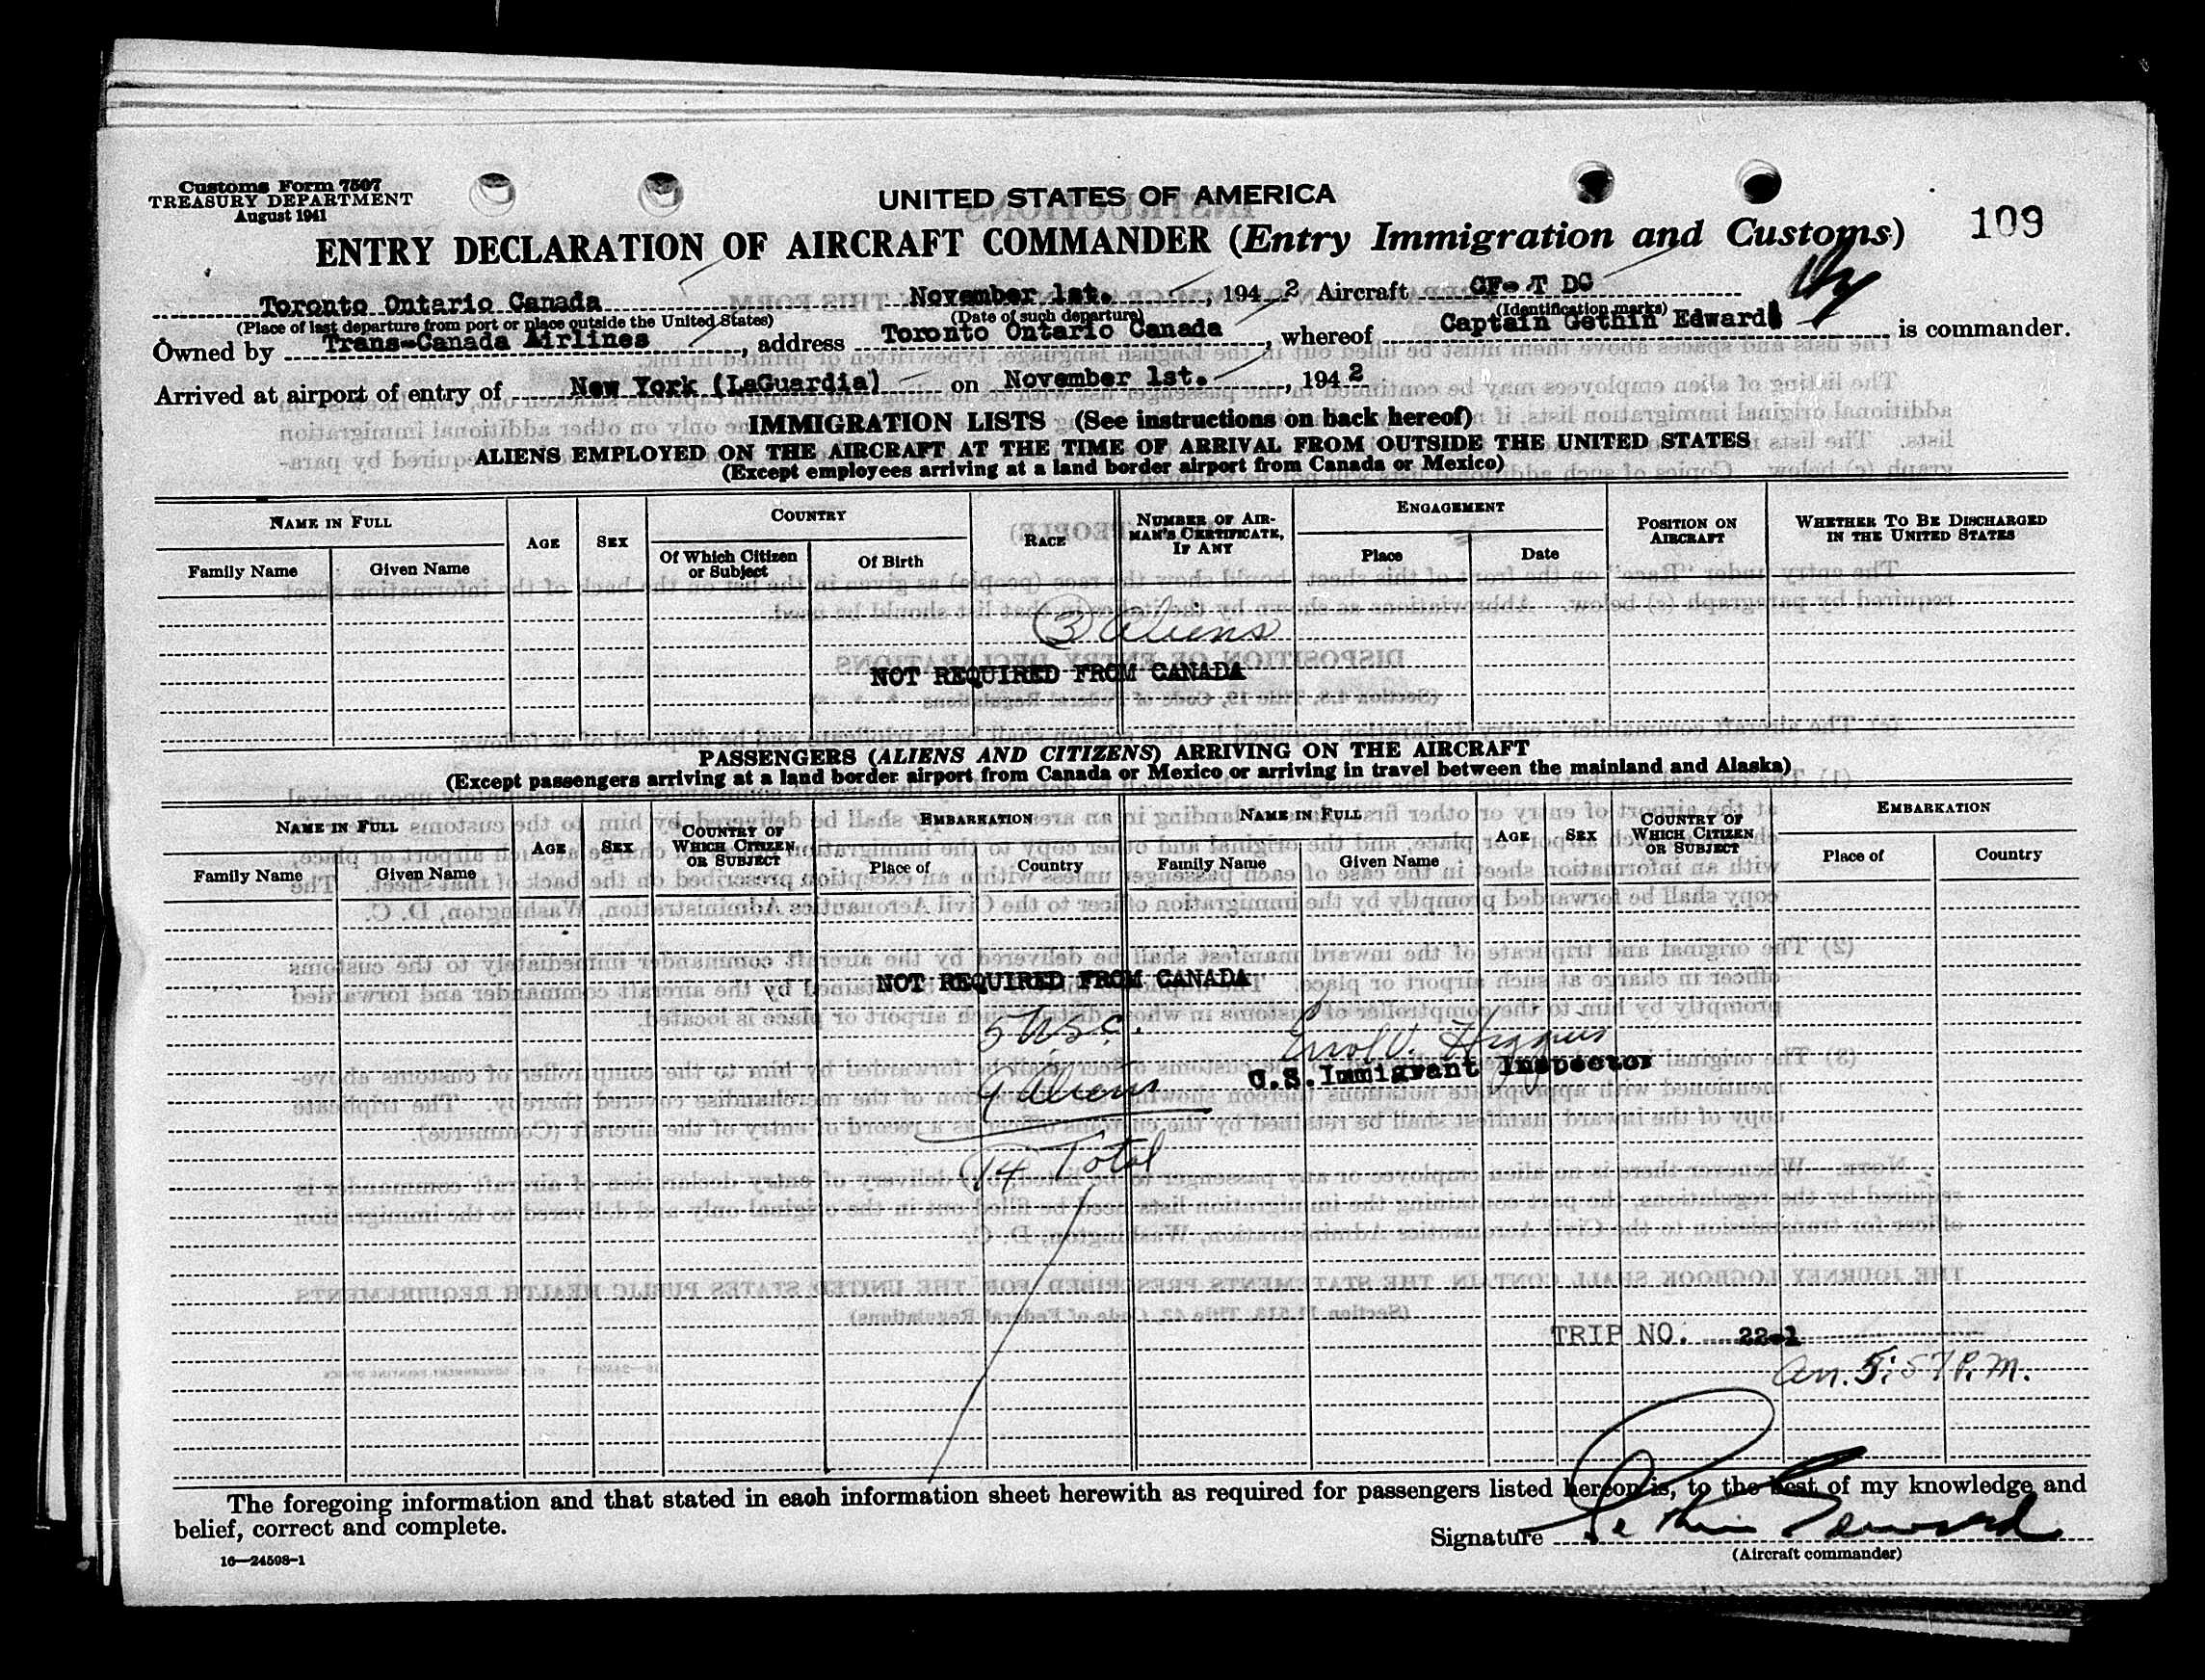 Customs Form 7507
TREASURY DEPARTMENT
August 1941
UNITED STATES OF AMERICA
109
ENTRY DECLARATION OF AIRCRAFT COMMANDER (Entry Immigration and Customs)
Toronto Ontario Canada November 1st., 1942 Aircraft CF- T DC
(Place of last departure from port or place outside the United States) (Date of such departure) (Identification marks)
Owned by Trans-Canada Airlines, address Toronto Ontario Canada, whereof Captain Gethin Edward is commander.
Arrived at airport of entry of New York (LaGuardia) on November 1st., 1942
IMMIGRATION LISTS (See instructions on back hereof)
ALIENS EMPLOYED ON THE AIRCRAFT AT THE TIME OF ARRIVAL FROM OUTSIDE THE UNITED STATES
(Except employees arriving at a land border airport from Canada or Mexico)
NAME IN FULL AGE SEX COUNTRY RACE NUMBER OF AIRMAN'S CERTIFICATE, IF ANY ENGAGEMENT POSITION ON AIRCRAFT WHETHER TO BE DISCHARGED IN THE UNITED STATES
Family Name Given Name Of Which Citizen or Subject Of Birth Place Date
3 Aliens
NOT REQUIRED FROM CANADA
PASSENGERS (ALIENS AND CITIZENS) ARRIVING ON THE AIRCRAFT
(Except passengers arriving at a land border airport from Canada or Mexico or arriving in travel between the mainland and Alaska)
NAME IN FULL AGE SEX COUNTRY OF WHICH CITIZEN OR SUBJECT EMBARKATION NAME IN FULL AGE SEX COUNTRY OF WHICH CITIZEN OR SUBJECT EMBARKATION
Family Name Given Name Place of Country Family Name Given Name Place of Country
NOT REQUIRED FROM CANADA
5 U.S.C.
Errol V. Higgins
U.S. Immigrant Inspector
9 Aliens
14 Total
TRIP NO. 22-1
Arr. 5:57 P.M.
The foregoing information and that stated in each information sheet herewith as required for passengers listed hereon is, to the best of my knowledge and
belief, correct and complete.
Signature Gethin Edward
(Aircraft commander)
16—24598-1